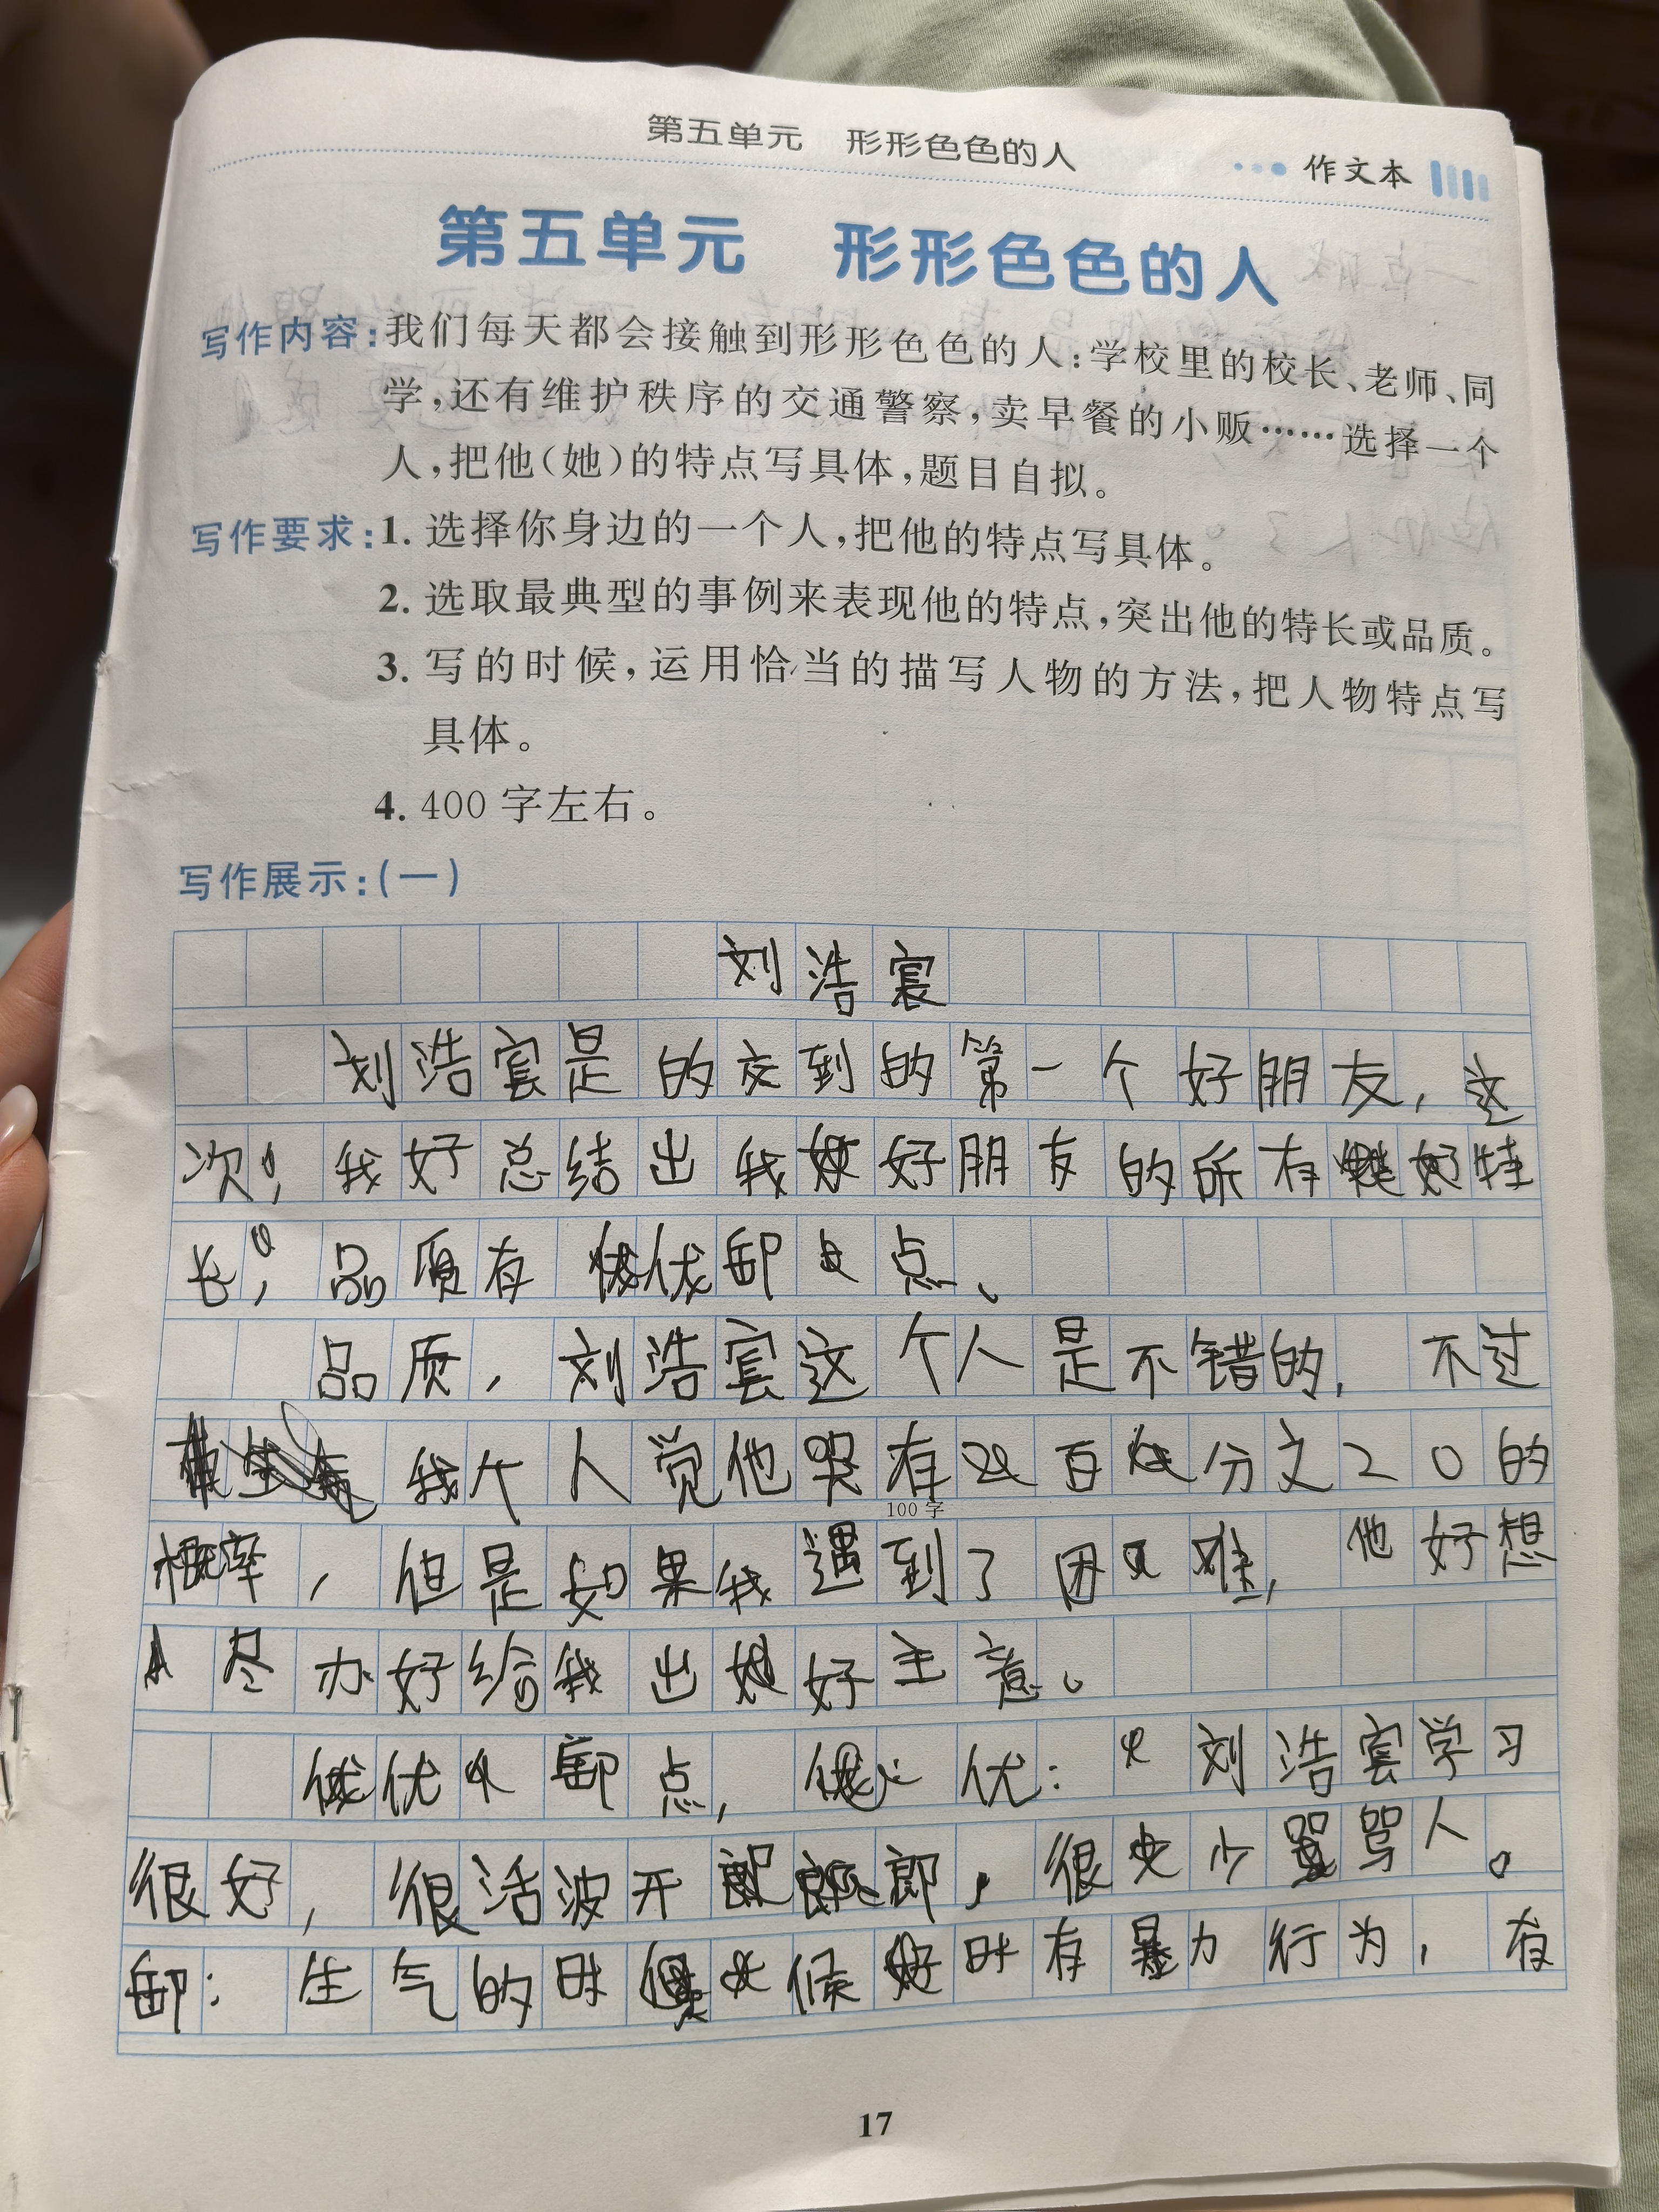 第五单元 形形色色的人
作文本
第五单元 形形色色的人
写作内容:我们每天都会接触到形形色色的人:学校里的校长、老师、同
学,还有维护秩序的交通警察,卖早餐的小贩……选择一个
人,把他(她)的特点写具体,题目自拟。
写作要求:1. 选择你身边的一个人,把他的特点写具体。
2. 选取最典型的事例来表现他的特点,突出他的特长或品质。
3. 写的时候,运用恰当的描写人物的方法,把人物特点写
具体。
4. 400 字左右。
写作展示:(一)
刘浩宸
刘浩宸是的交到的第一个好朋友,这
次,我好总结出我好朋友的所有特
长,品质有优卸点、
品质,刘浩宸这个人是不错的,不过
我个人觉他哭有百分之20的
概率,但是如果我遇到了困难,他好想
尽办好给我出好主意。
优卸点,优:刘浩宸学习
很好,很活波开郎,很少骂人。
100 字
卸:生气的时候时有暴力行为,有
17